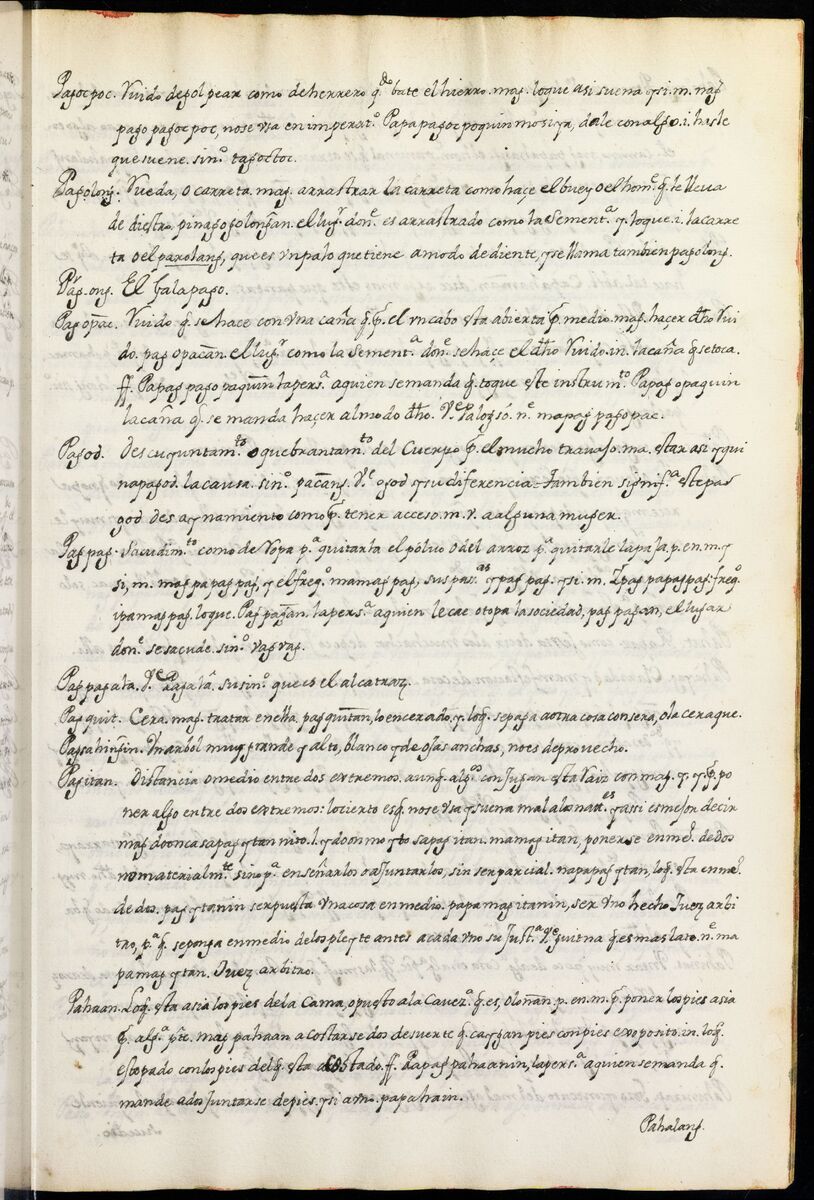 Pagocpoc. Ruido de golpear como de herrero q.do bate el hierro. mag. loque asi suena ysi. m. nag
pago pagocpoc, nose vsa en imperat.o Papapagocpoquin mo siya, dale con algo. i. hasle
que suene. sin.o tagoctoc.
Pagolong. Rueda, o carreta. mag. arrastrar la carreta como haçe el buey o el hom.e q. te lleva
de diestro, pinagogolongan. el lug.r don.e es arrastrado como la Sement.a y loque. i. la carre
ta o el parolang, que es vn palo que tiene a modo de diente, yse llama tambien pagolong.
Pag. ong. El Galapago.
Pagopac. Ruido q. se hace con vna caña q. p. el vn cabo esta abierta p. medio. mag. haçer dho Rui
do. pag opacan. el lug.r como la Sement.a don.e se haçe el dho Ruido. in. la caña q. se toca.
ff. Papag pago paquin la pers.a a quien se manda q. toque este instrum.to Papagopaquin
la caña q. se manda haçer al modo dho. V.e Palogsó. n.e mapag pagopac.
Pagod. Descuyuntam.to o quebrantam.to del Cuerpo p. el mucho travajo. ma. estar asi yqui
napagod. la causa. sin.o pacang. V.e ogod ysu diferencia. Tambien signif.a este pa
god desaynamiento como p. tener acceso. m. v. a alguna muger.
Pagpag. Sacudim.to como de Ropa p.a quitarla el polvo o del arroz p.a quitarle la paja. p. en. m. y
si, m. mag papagpag, y el freq.o mamagpag, sus pas.as ypagpag. ysi. m. Ypag papagpag: freq.o
ipamagpag. loque. Pagpagan. la pers.a a quien le cae o topa la sociedad, pagpagan, el lugar
don.e se sacude. sin.o vagvag.
Pagpagala. V.e Pagala. su sin.o que es el alcatraz.
Pagquit. Cera. mag. tratar en ella, pagquitan, lo encerado, y loq. se paga a otra cosa con sera, o la cera que.
Pagsahingin. Vn arbol muy grande y alto, blanco y de ojas anchas, no es de provecho.
Pagitan. Distancia o medio entre dos extremos. aunq. alg.os conjugan esta Raiz con mag. y y p. po
ner algo entre dos extremos: lo cierto es q. nose vsa y suena mal a los nat.es y assi es mejor decir
mag doon ca sa pagytan nito. l. ydoon mo yto sa pagitan. mamagitan, ponerse en med. de dos
no material m.te sino p.a enseñarlos o ajuntarlos, sin ser parcial. napapagytan, loq. esta en med.
de dos. pagytanin ser puesta vna cosa en medio. papamagitanin, ser vno hecho Juez arbi
tro, p.a q. se ponga en medio de los pleyteantes a cada vno su Just.a V.e guitna q. es mas lato. n.e ma
pamagytan. Juez arbitro.
Pahaan. Loq. esta asia los pies de la Cama, opuesto a la Cavez.a q. es, olonan. p. en. m. p. poner los pies asia
p. alg.a pte. mag pahaan acostarse dos de suerte q. caygan pies con pies exoposito. in. loq.
es topado con los pies del q. esta acostado. ff. Papagpahaanin, la pers.a a quien se manda q.
mande a dos juntarse de pies. ysi a vno. papahain.
Pahalang.